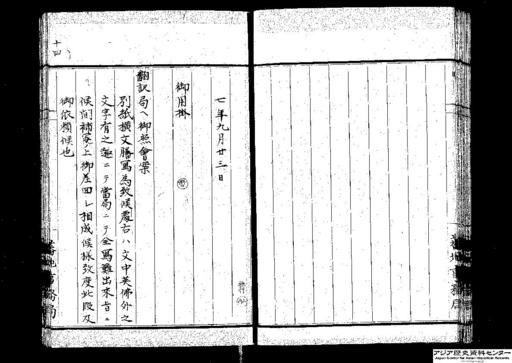 十四
七年九月廿三日
御用掛
翻訳局へ御照會案
別紙横文謄寫為致候處右ハ文中英佛外之
文字有之趣ニテ當局ニテ全寫難出來旨ニ
候間補寫之上御差回シ相成候様致度此段及
御依頼候也
蕃地事務局
アジア歴史資料センター
Japan Center for Asian Historical Records